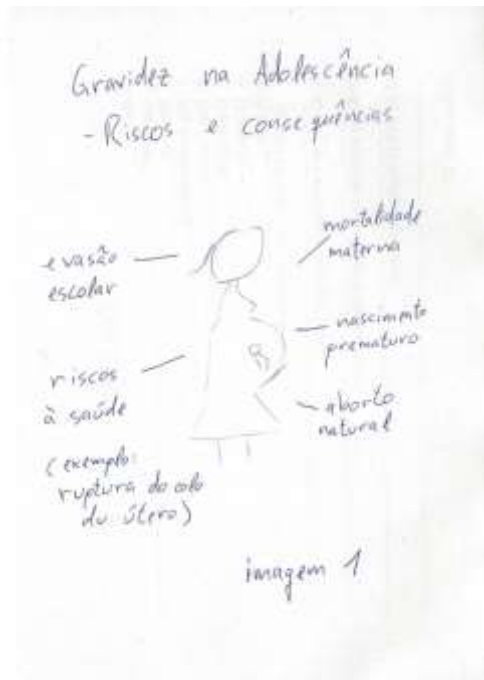 Gravidez na Adolescência
- Riscos e consequências
evasão
escolar
mortalidade
materna
nascimento
prematuro
riscos
à saúde
(exemplo:
ruptura do colo
du útero)
aborto
natural
imagem 1